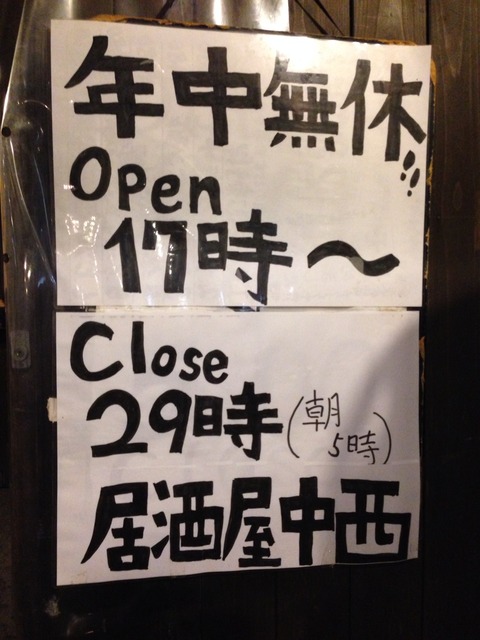 年中無休!!
Open
17時〜
Close
29時(朝5時)
居酒屋中西